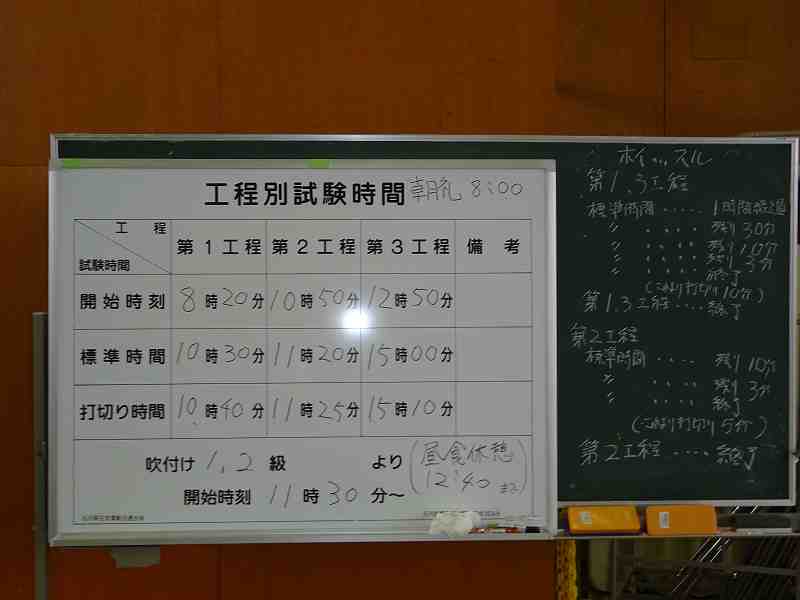 工程別試験時間 朝礼 8:00
工程 試験時間 第1工程 第2工程 第3工程 備考
開始時刻 8時20分 10時50分 12時50分
標準時間 10時30分 11時20分 15時00分
打切り時間 10時40分 11時25分 15時10分
吹付け 1,2級 より (昼食休憩
開始時刻 11時30分～ 12:40まで)
ホイッスル
第1,3工程
標準時間‥‥1時間経過
〃 ‥‥残り30分
〃 ‥‥残り10分
〃 ‥‥残り3分
〃 ‥‥終了
(これより打切り10分)
第1.3工程‥‥終了
第2工程
標準時間‥‥残り10分
〃 ‥‥残り3分
〃 ‥‥終了
(これより打切り5分)
第2工程‥‥終了